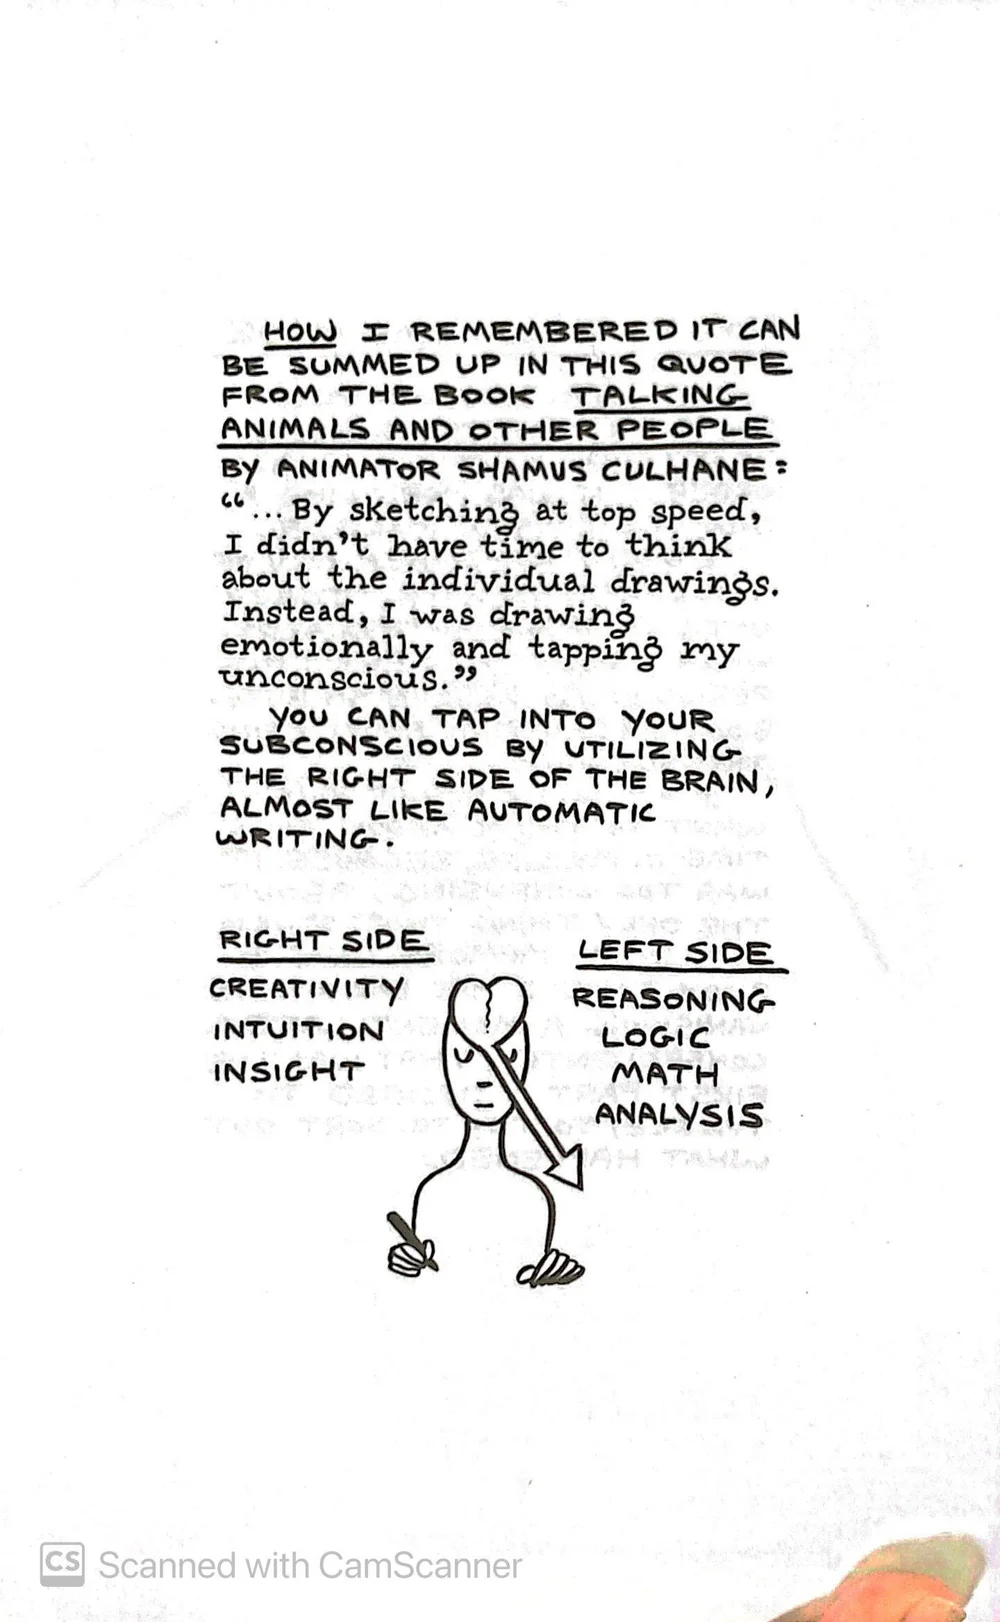 HOW I REMEMBERED IT CAN
BE SUMMED UP IN THIS QUOTE
FROM THE BOOK TALKING
ANIMALS AND OTHER PEOPLE
BY ANIMATOR SHAMUS CULHANE:
“... By sketching at top speed,
I didn’t have time to think
about the individual drawings.
Instead, I was drawing
emotionally and tapping my
unconscious.”
YOU CAN TAP INTO YOUR
SUBCONSCIOUS BY UTILIZING
THE RIGHT SIDE OF THE BRAIN,
ALMOST LIKE AUTOMATIC
WRITING.
RIGHT SIDE
CREATIVITY
INTUITION
INSIGHT
LEFT SIDE
REASONING
LOGIC
MATH
ANALYSIS
CS Scanned with CamScanner